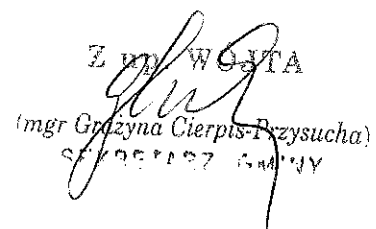 Z up. WÓJTA
(mgr Grażyna Cierpis-Przysucha)
SEKRETARZ GMINY